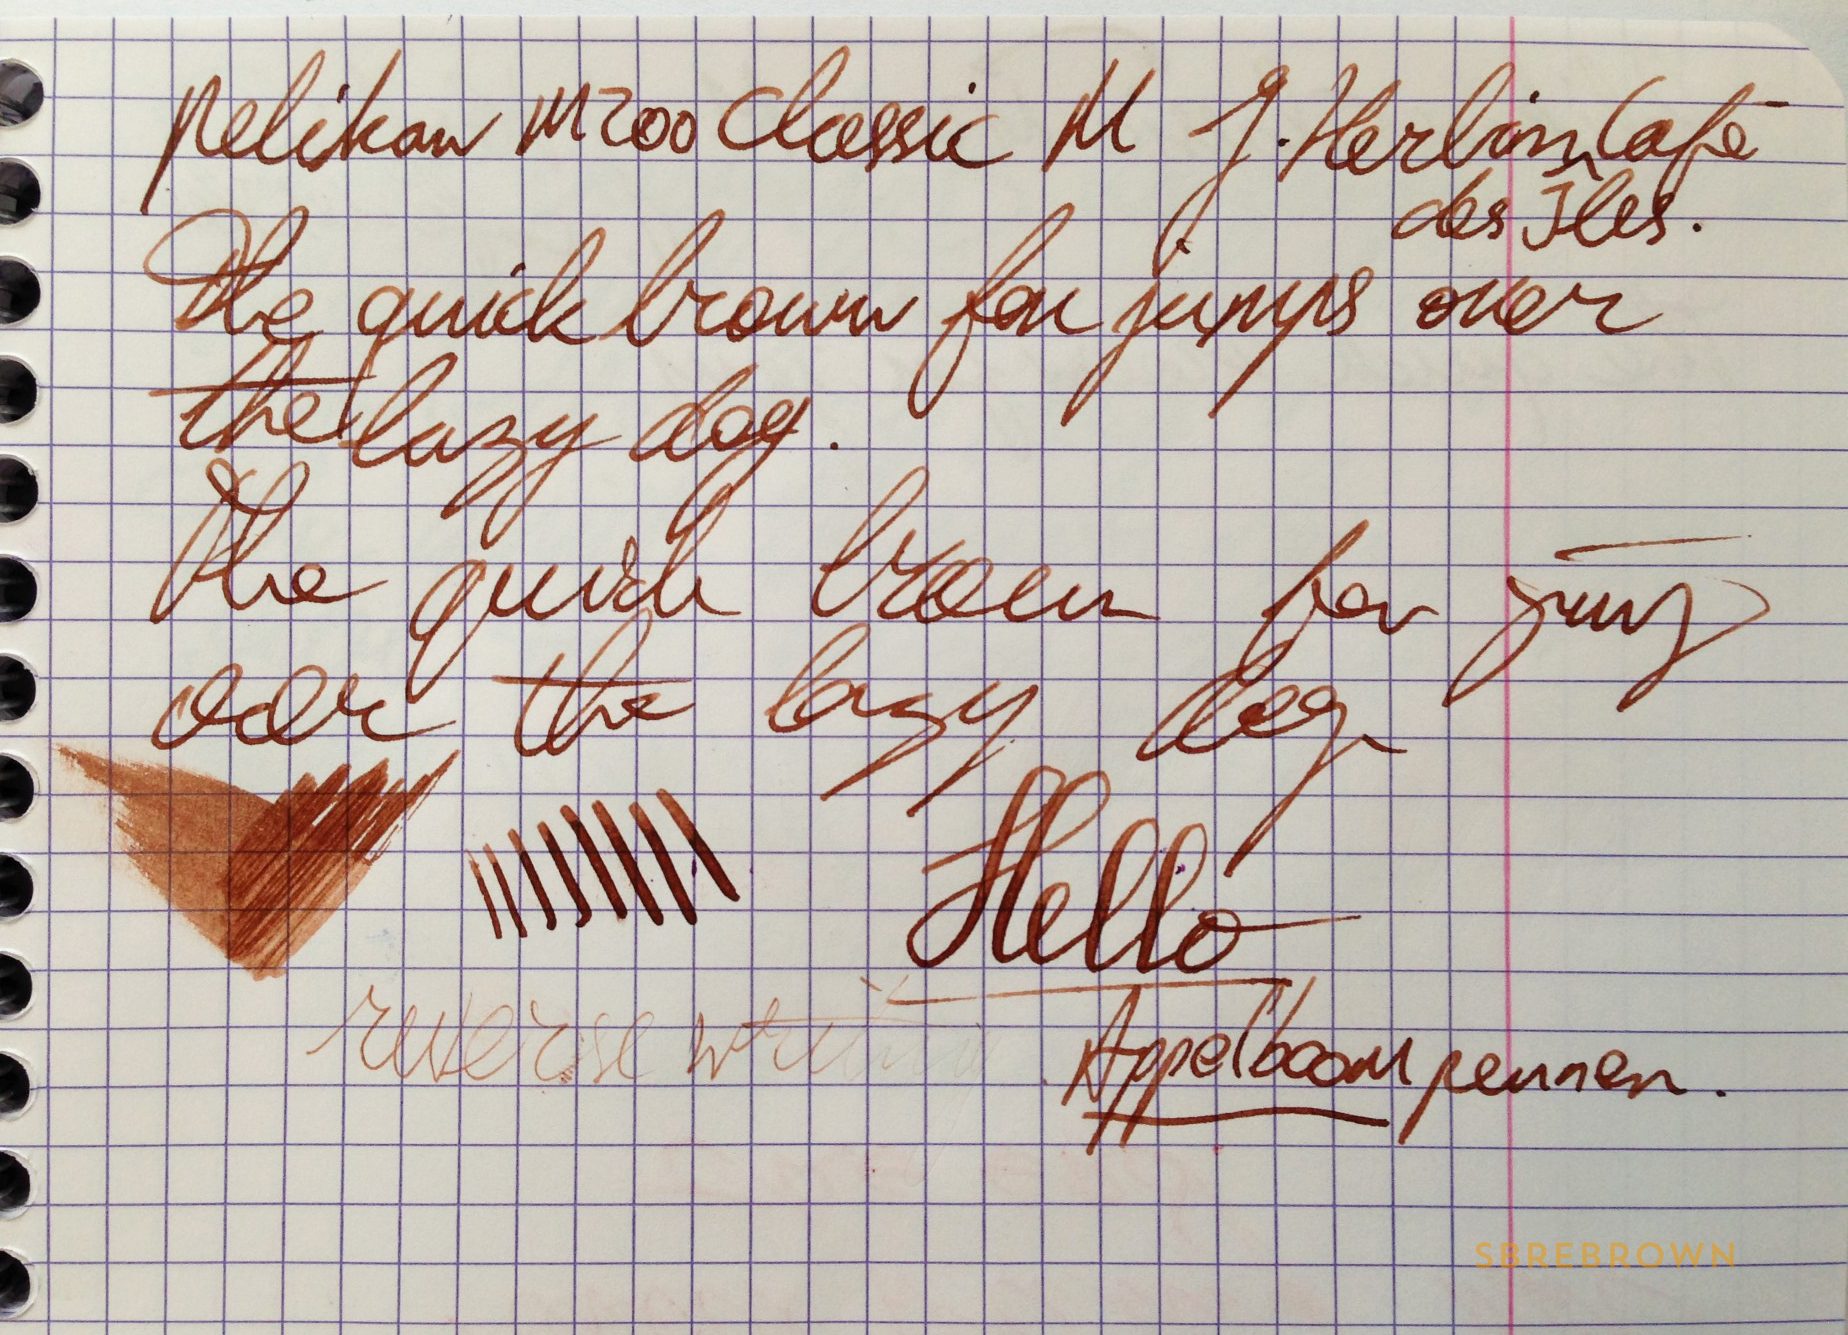 Pelikan M200 Classic M J. Herbin Café
des Îles.
The quick brown fox jumps over
the lazy dog.
The quick brown fox jumps
over the lazy dog
Hello
reverse writing
Appelboom pennen.
SBREBROWN